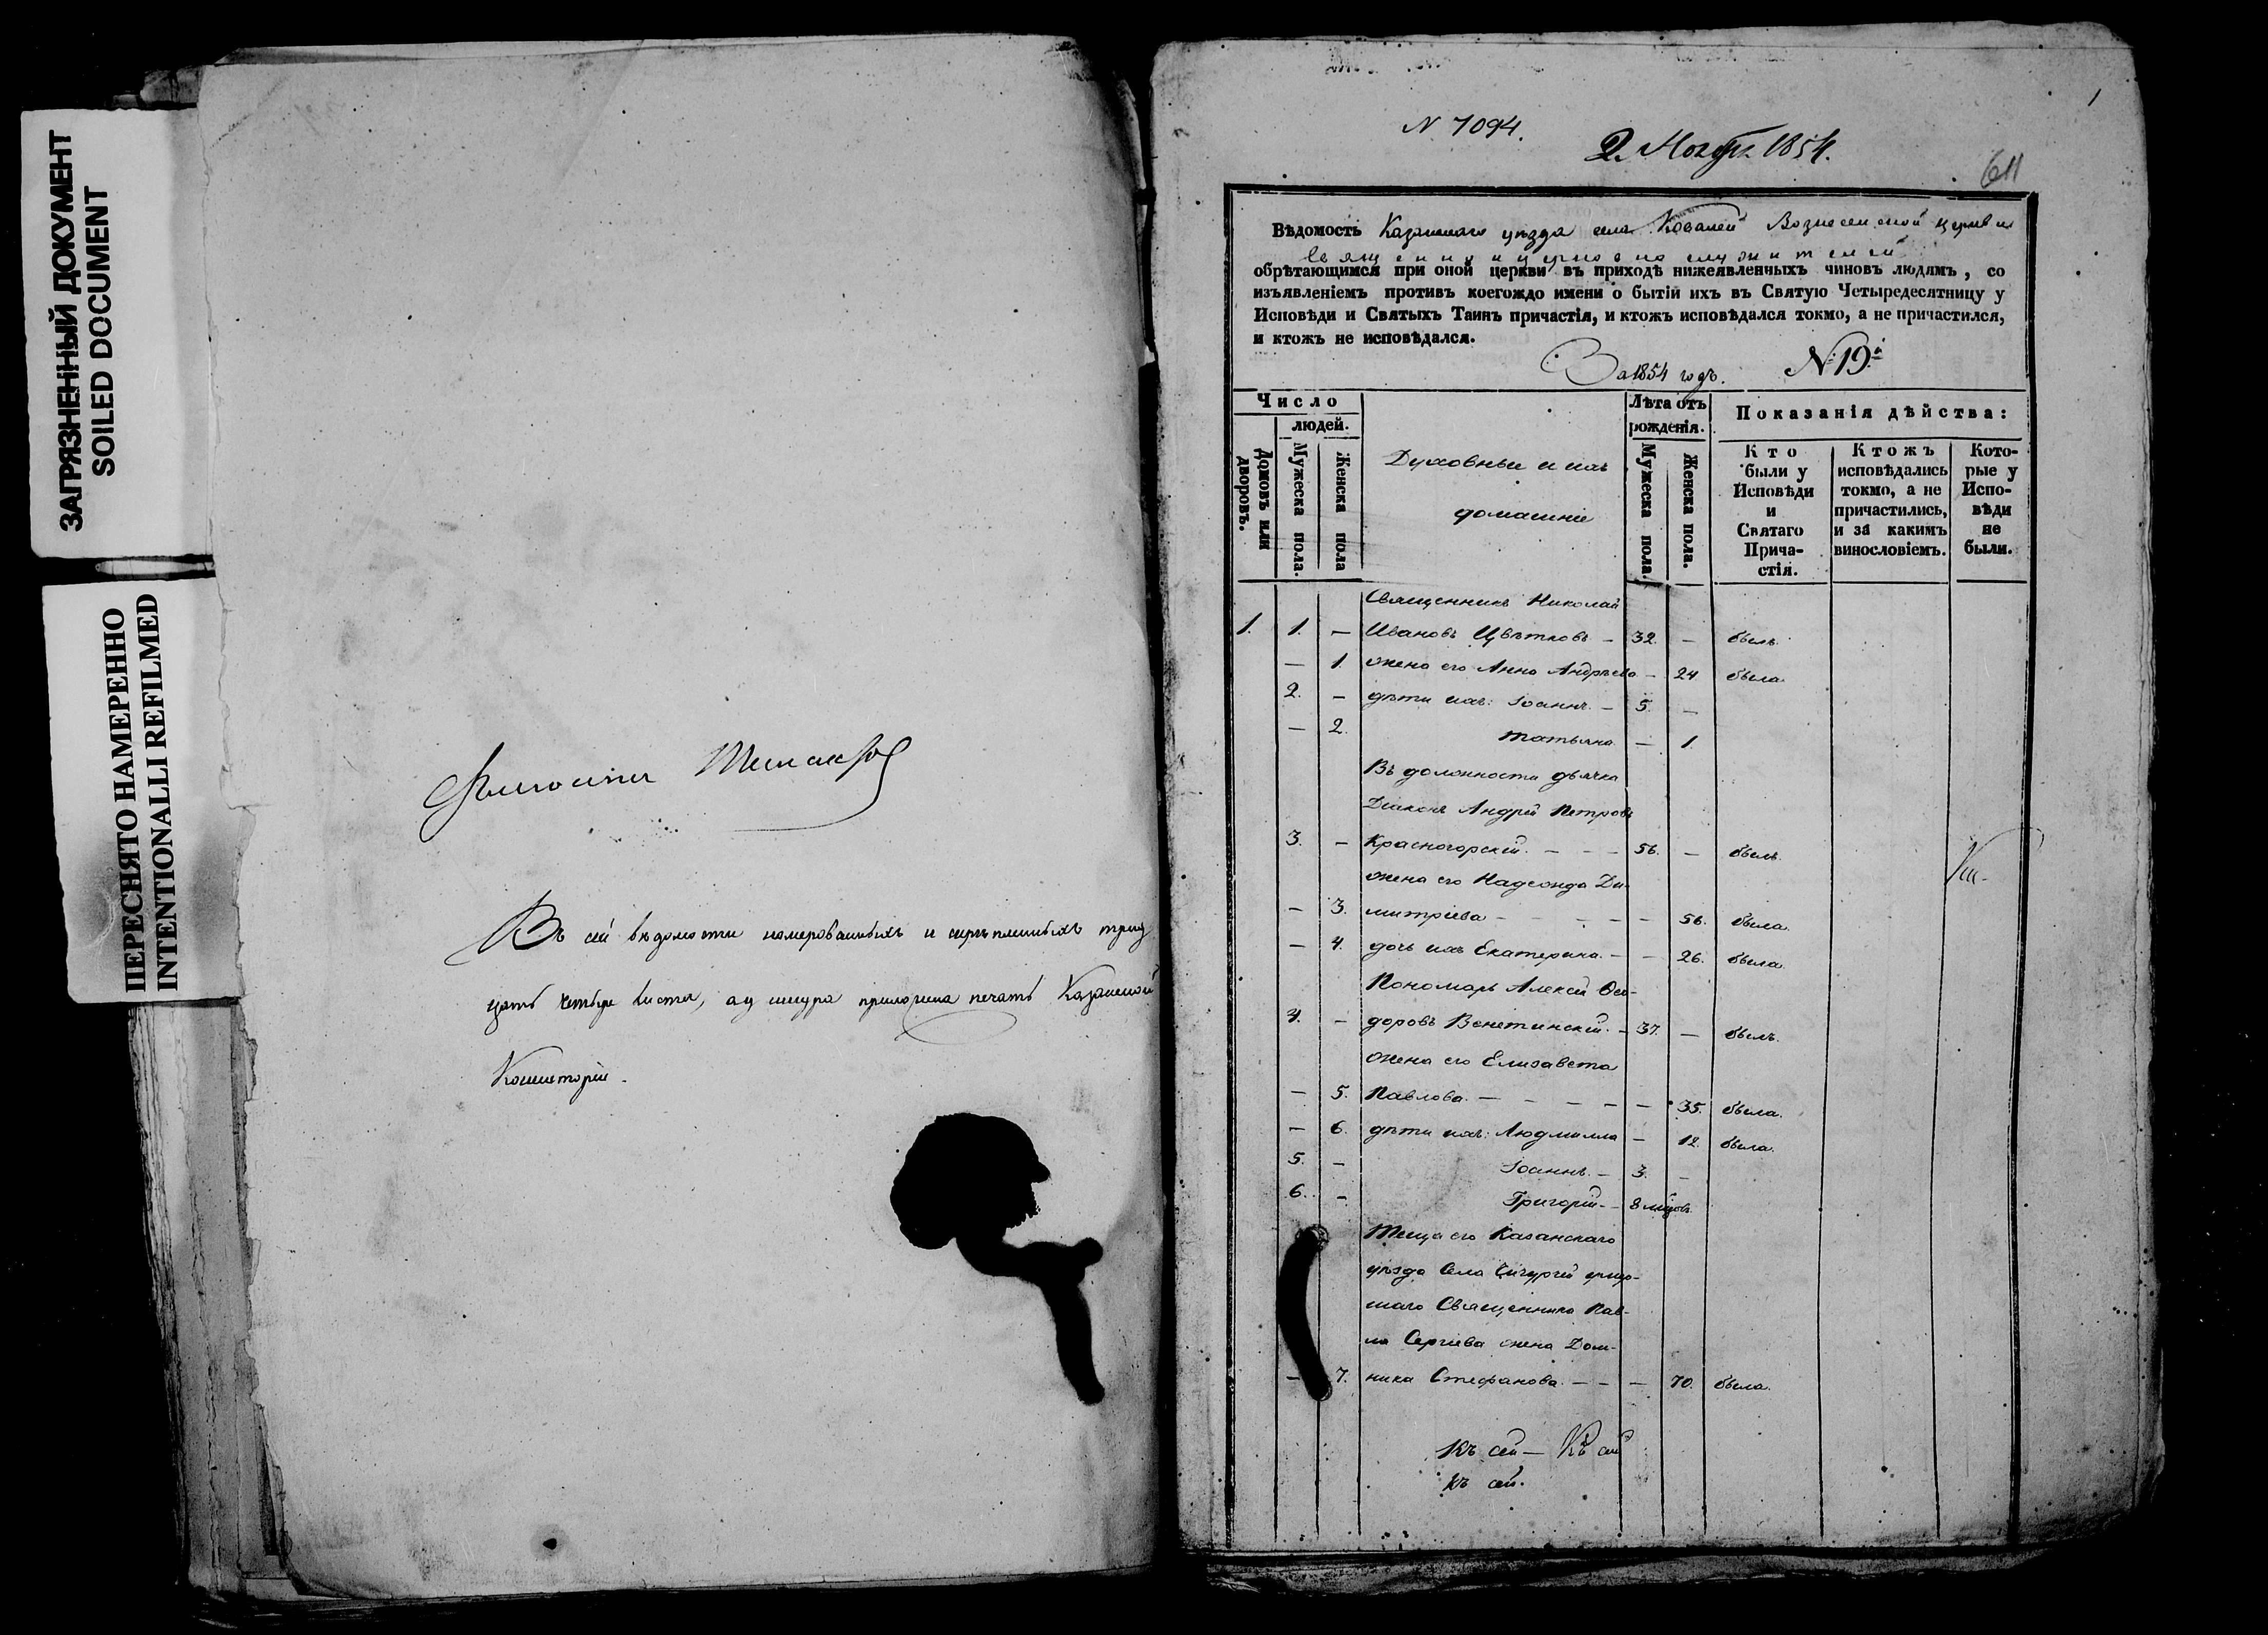 ЗАГРЯЗНЕННЫЙ ДОКУМЕНТ
SOILED DOCUMENT
ПЕРЕСНЯТО НАМЕРЕННО
INTENTIONALLI REFILMED
Въ сей вѣдомости номерованныхъ и скрѣпленныхъ трид
цать четыре листа, а у шнура приложена печать Казанской
Консисторіи.
1
N 7094.
2. Ноября 1854.
611
Вѣдомость Казанскаго уѣзда села Ковалей Вознесенской церкви
священноицерковнослужителей
обрѣтающимся при оной церкви въ приходѣ нижеявленныхъ чиновъ людямъ, со
изъявленіемъ противъ коегождо имени о бытіи ихъ въ Святую Четыредесятницу у
Исповѣди и Святыхъ Таинъ причастія, и ктожъ исповѣдался токмо, а не причастился,
и ктожъ не исповѣдался.
За 1854 годъ. №19й
Число
людей.
Домовъ или дворовъ.
Мужеска пола.
Женска пола
Духовные и ихъ
домашніе
Лѣта отъ
рожденія.
Мужеска пола.
Женска пола.
Показанія дѣйства:
Кто
были у
Исповѣди
и
Святаго
Прича-
стія.
Ктожъ
исповѣдались
токмо, а не
причастились,
и за какимъ
винословіемъ.
Кото-
рые у
Испо-
вѣди
не
были.
Священникъ Николай
1. 1. — Ивановъ Цвѣтковъ — 32. — былъ.
— 1. жена его Анна Андреева — 24 была.
2. — дѣти ихъ: Іоаннъ. — 5. —
— 2. Татьяна — 1.
Въ должности дьячка
Діаконъ Андрей Петровъ
3. — Красногорскій. — — — 56. — былъ.
жена его Надежда Ди-
— 3. митріева — — — — — 56. была.
— 4. дочь ихъ Екатерина. — — 26. была.
Пономарь Алексѣй Ѳео-
4. — доровъ Венетинскій. — 37. — былъ.
жена его Елизавета
— 5. Павлова. — — — — — — 35. была.
— 6. дѣти ихъ: Людмилла — 12. была.
5. — Іоаннъ. — 3. —
6. — Григорій. — 8 мѣсяцовъ.
Теща его Казанскаго
уѣзда Села умер-
шаго Священника Пав-
ла Сергіева жена Дом-
— 7. ника Стефанова. — — — 70. была.
Къ сей — Къ сей
Къ сей.